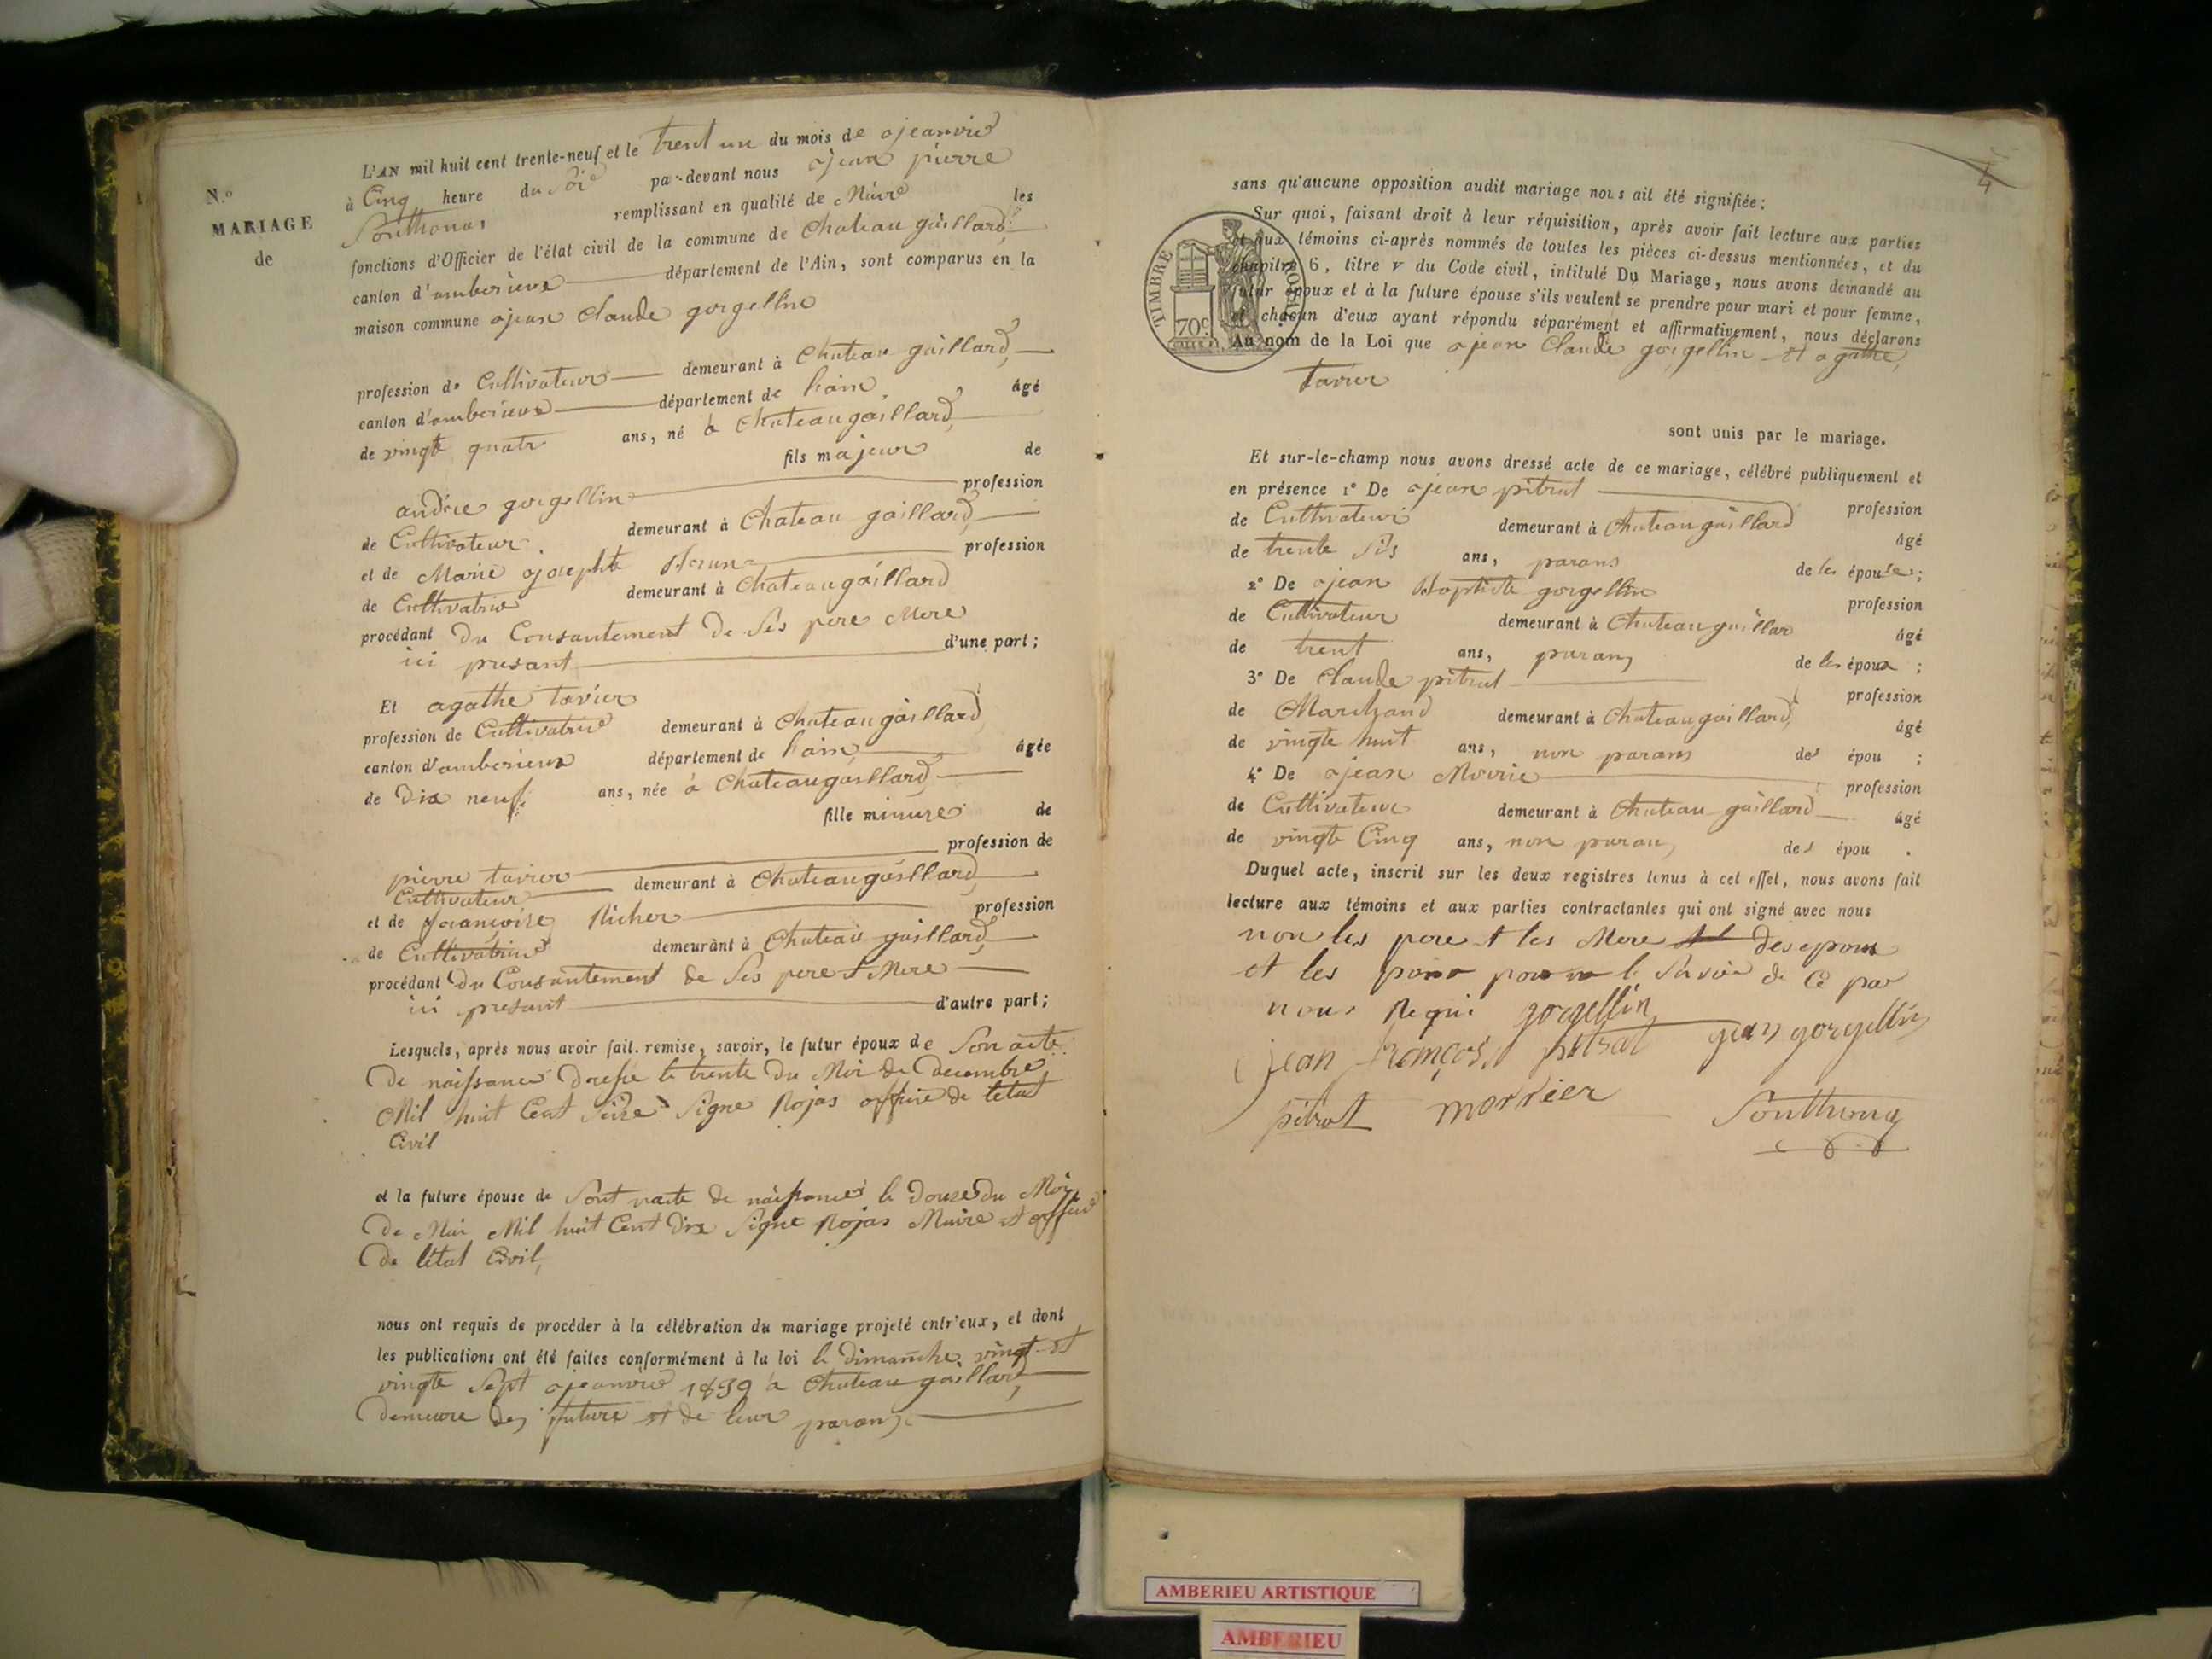 N.º
MARIAGE
de
L'AN mil huit cent trente-neuf et le trent un du mois de ojeanvie
à Cinq heure du Soir par-devant nous ojean pierre
Southonas remplissant en qualité de Maire les
fonctions d'Officier de l'état civil de la commune de Chateau gaillard
canton d'amberieux département de l'Ain, sont comparus en la
maison commune ojean Claude gorgellin
profession de Cultivateur demeurant à Chateau gaillard
canton d'amberieux département de lain âgé
de vingte quatr ans, né à Chateaugaillard
fils majeur de
andrée gorgellin profession
de Cultivateur demeurant à Chateau gaillard
et de Marie ojosephte profession
de Cultivatrice demeurant à Chateaugaillard
procédant du Consantement de Ses pere Mere
ici presant d'une part;
Et agathe tavier
profession de Cultivatrice demeurant à Chateaugaillard
canton d'amberieux département de lain âgée
de dix neuf ans, née à Chateaugaillard
fille minure de
pierre tavier profession de
Cultivateur demeurant à Chateaugaillard
et de françoise Richer profession
de Cultivatrice demeurant à Chateau gaillard
procédant du Consantement de Ses pere et Mere
ici presant d'autre part;
Lesquels, après nous avoir fait remise, savoir, le futur époux de Son acte
De naissance Dresse le trente Du Moi de decembre
Mil huit Cent Seize Signe Rojas officie de letat
Civil
et la future épouse de Sont nacte de naissance le Douze du Moi
De Mai Mil huit Cent dix Signe Rojas Maire et officie
De létat Civil
nous ont requis de procéder à la célébration du mariage projeté entr'eux, et dont
les publications ont été faites conformément à la loi le dimanche vingt et
vingte Sept ojeanvie 1839 a Chateau gaillard
Demeure des future et de leur parans
4
sans qu'aucune opposition audit mariage nous ait été signifiée;
Sur quoi, faisant droit à leur réquisition, après avoir fait lecture aux parties
et aux témoins ci-après nommés de toutes les pièces ci-dessus mentionnées, et du
chapitre 6, titre v du Code civil, intitulé Du Mariage, nous avons demandé au
futur époux et à la future épouse s'ils veulent se prendre pour mari et pour femme,
et chacun d'eux ayant répondu séparément et affirmativement, nous déclarons
Au nom de la Loi que ojean Claude gorgellin et agathe
tavier
TIMBRE ROYAL
70c
sont unis par le mariage.
Et sur-le-champ nous avons dressé acte de ce mariage, célébré publiquement et
en présence 1º De ojean pitrat profession
de Cultivateur demeurant à Chateaugaillard âgé
de trente Sis ans, parans de les épouse;
2º De ojean Baptiste gorgellin profession
de Cultivateur demeurant à Chateaugaillar âgé
de trent ans, parans de les époux;
3º De Claude pitrat profession
de Marchand demeurant à Chateaugaillard âgé
de vingte huit ans, non parans des épou ;
4º De ojean Morrie profession
de Cultivateur demeurant à Chateau gaillard âgé
de vingte Cinq ans, non parans des épou .
Duquel acte, inscrit sur les deux registres tenus à cet effet, nous avons fait
lecture aux témoins et aux parties contractantes qui ont signé avec nous
non les pere et les Mere des epoux
et les pour le Savoir de Ce par
nous Requi gorgellin
jean françois pitrat jean gorgellin
pitrat morrier Southonas
AMBERIEU ARTISTIQUE
AMBERIEU